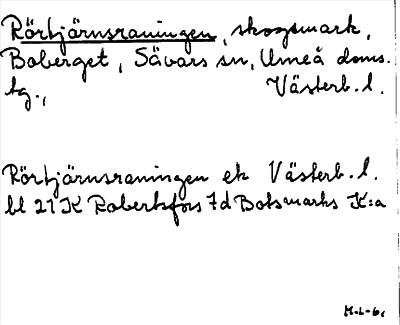 Rörtjärnsraningen, skogsmark,
Boberget, Sävars sn, Umeå doms.
tg., Västerb.l.
Rörtjärnsraningen ek Västerb.l.
bl 21K Robertsfors 7d Botsmarks K:a
M-L-G,